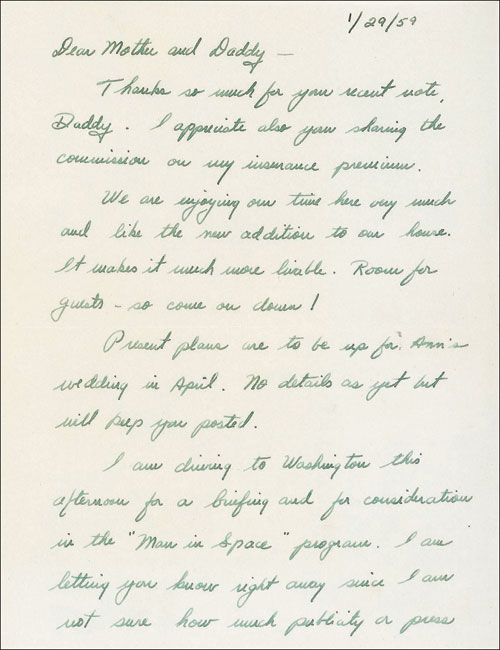 1/29/59
Dear Mother and Daddy —
Thanks so much for your recent note,
Daddy. I appriciate also your sharing the
commission on my insurance premium.
We are enjoying our time here very much
and like the new addition to our house.
It makes it much more livible. Room for
guests – so come on down!
Present plans are to be up for Ann's
wedding in April. No details as yet but
will keep you posted.
I am driving to Washington this
afternoon for a briefing and for consideration
in the "Man in Space" program. I am
letting you know right away since I am
not sure how much publicity or press